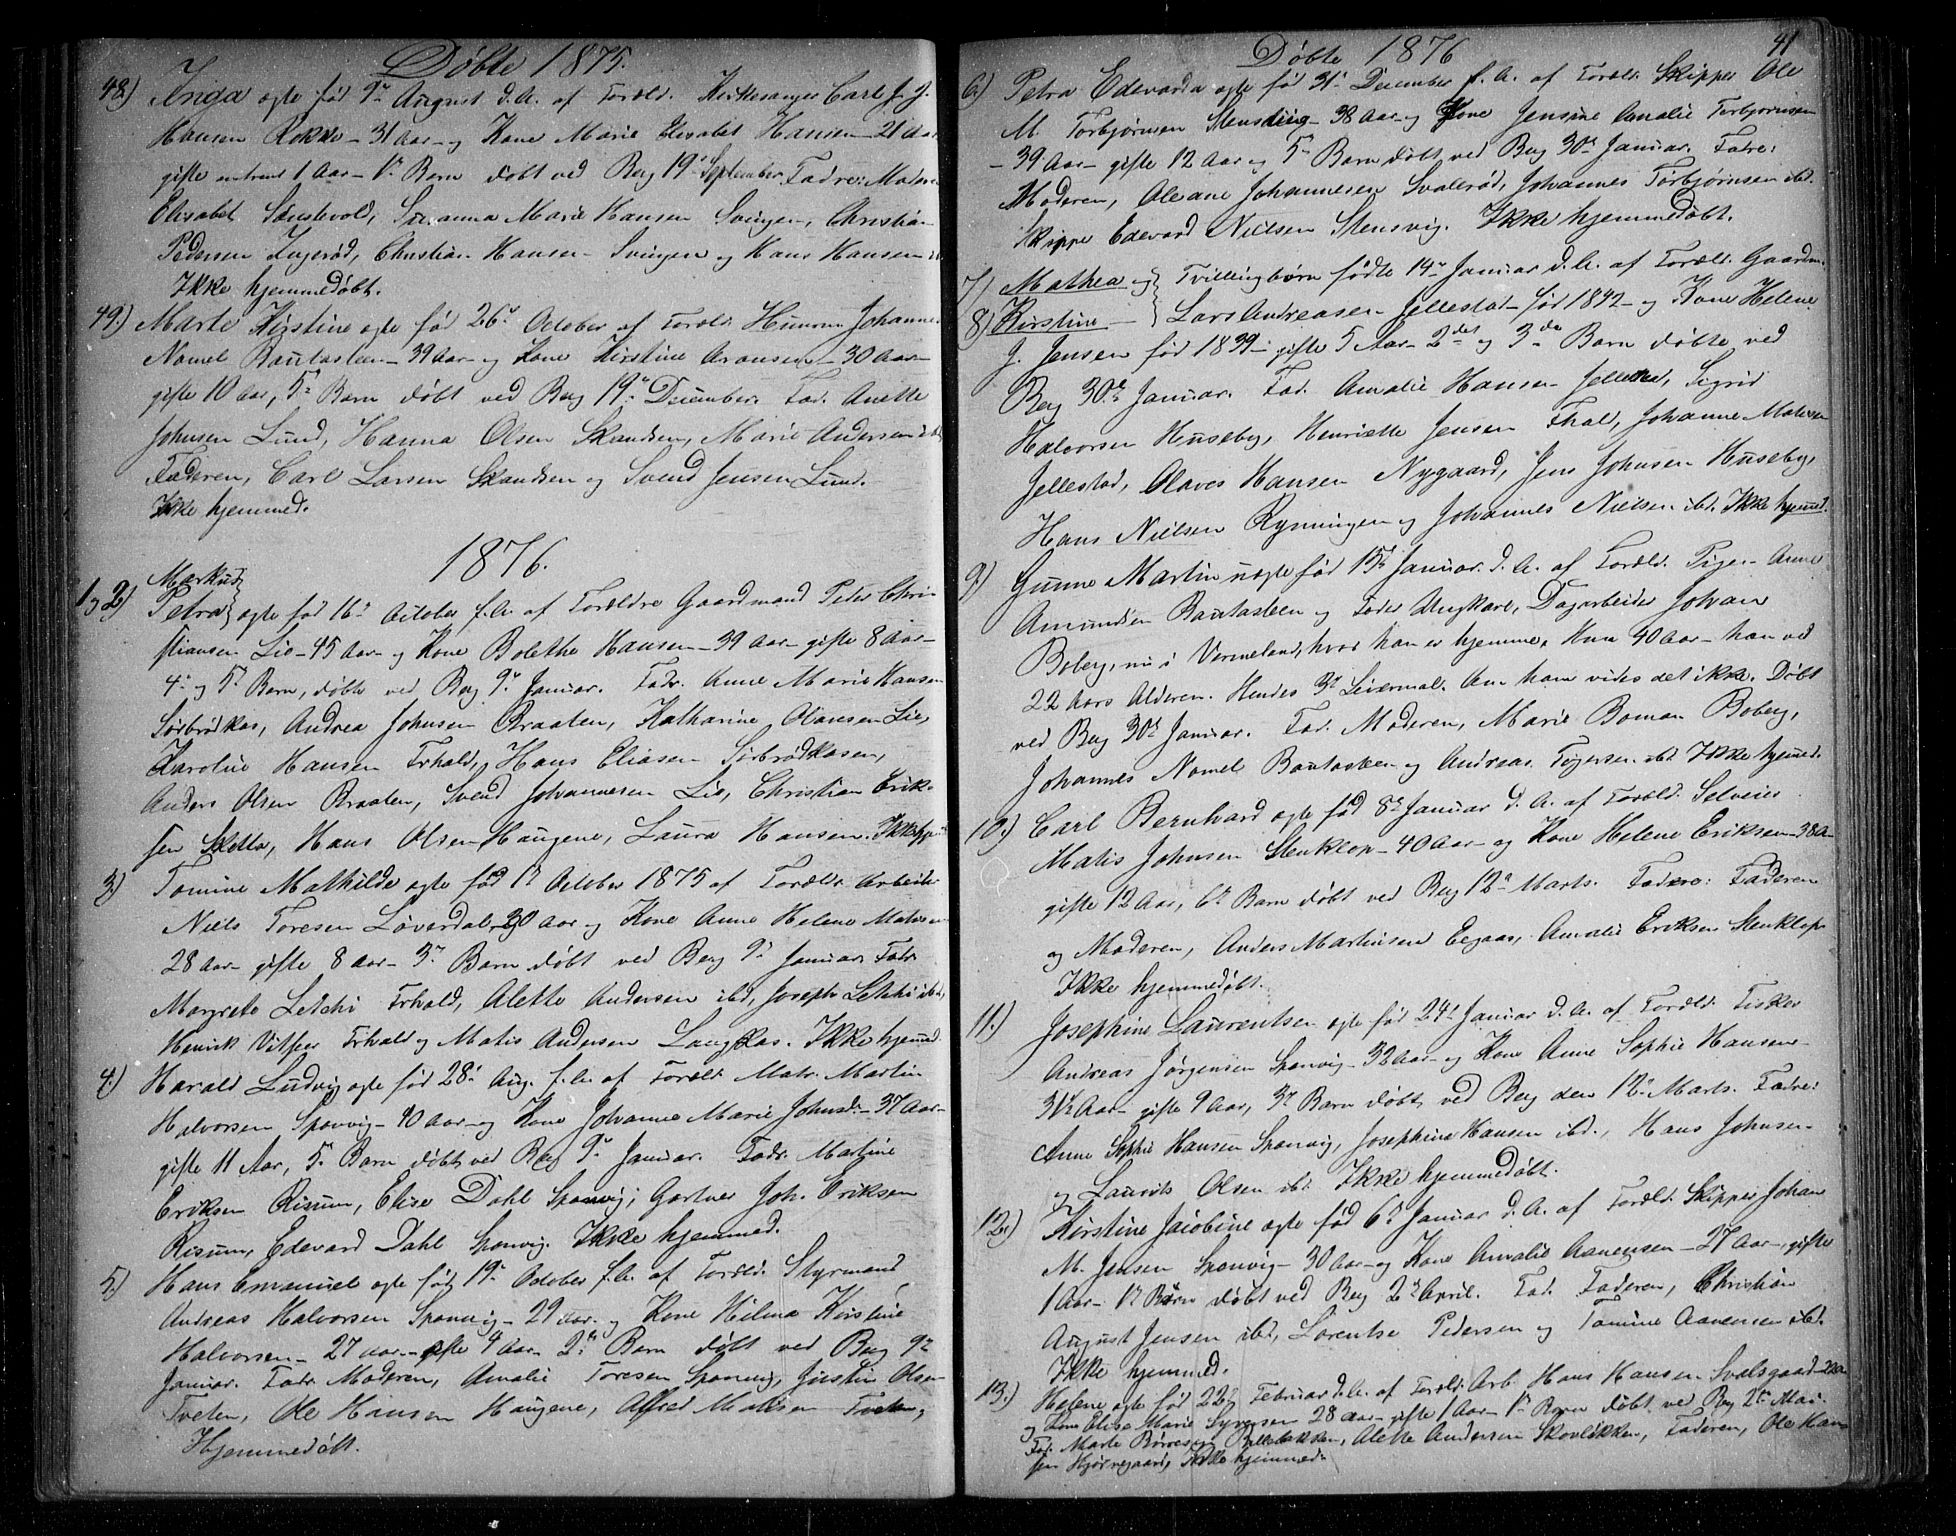 Døbte 1875.
48.) Inga ægte fød 9de August d. A. af Foræld. Kirkesanger Carl J. J.
Hansen Rokke – 31 Aar – og Kone Marie Elisabet Hansen – 21 Aar
gifte omtrent 1 Aar – 1ste Barn døbt ved Berg 19de September. Fadre: Moderen
Elisabet Søndevold, Susanna Marie Hansen Svingen, Christian
Pedersen Ingerød, Christian Hansen Svingen og Hans Hansen
Ikke hjemmedøbt.
49.) Marte Kirstine ægte fød 26de October af Foræld. Johannes
Namel Bautasteen – 39 Aar – og Kone Kirstine Aronsen – 30 Aar –
gifte 10 Aar, 5te Barn døbt ved Berg 19de December. Fad. Anette
Johnsen Lund, Hanna Olsen Skandsen, Marie Andersen ibd.
Faderen, Carl Larsen Skandsen og Svend Jensen Lund.
Ikke hjemmed.
1876.
Markus
1 og 2) Petra ægte fød 16de October f. A. af Forældre Gaardmand Peder Chri-
stiansen Lie – 45 Aar – og Kone Bolethe Hansen – 39 Aar – gifte 8 Aar –
4de og 5te Barn, døbte ved Berg 9de Januar. Fadr. Anne Marie Hansen
Sørbrødkas, Andrea Johnsen Braaten, Katharine Olausen Lie,
Karoline Hansen Frhald, Hans Eliasen Sørbrødkasen,
Anders Olsen Braaten, Svend Johannesen Lie, Christian Erik-
sen Skotta, Hans Olsen Haugene, Laura Hansen. Ikke hje
3) Tomine Mathilde ægte fød 1ste October 1875 af Foræld. Arbeider
Niels Toresen Løverdal, 30 Aar og Kone Anne Helene
28 Aar – gifte 8 Aar – 3de Barn døbt ved Berg 9de Januar. Fadr.
Margrete Letchi Frhald, Alette Andersen ibd, Joseph Letchi ibd,
Henrik Frhald og Matis Andersen Langkas. Ikke hjemmed.
4.) Harald Ludvig ægte fød 28de Aug. f. A. af Foræld. Matr. Martin
Halvorsen Sponvig – 40 Aar – og Kone Johanne Marie Johnsdr. – 37 Aar –
gifte 11 Aar, 5te Barn døbt ved Berg 9de Januar. Fadr. Martine
Eriksen Risum, Elise Dahl Sponvig, Gartner Joh. Eriksen
Risum, Edevard Dahl Sponvig. Ikke hjemmed.
5.) Hans Emanuel ægte fød 19de October f. A. af Foræld. Styrmand
Andreas Halvorsen Sponvig – 29 Aar – og Kone Hilma Kirstine
Halvorsen – 27 Aar – gifte 4 Aar – 2det Barn døbt ved Berg 9de
Januar. Fadr. Moderen, Amalie Toresen Sponvig, Justin Olsen
Tveten, Ole Hansen Haugene, Alfred Matisen Tveten,
Hjemmedøbt.
41
Døbte 1876
6.) Petra Edevarda ægte fød 31te December f. A. af Foræld. Skipper Ole
M Torbjørnsen Stensvig – 38 Aar – og Kone Jensine Amalie Torbjørnsen
– 39 Aar – gifte 12 Aar og 5te Barn døbt ved Berg 30te Januar. Fadre:
Moderen, Oleane Johannesen Svalerød, Johannes Torbjørnsen ibd.
Skipper Edevard Nielsen Stensvig. Ikke hjemmedøbt.
7) Mathea og Tvillingbørn fødte 14de Januar d. A. af Foræld. Gaardm.
8) Kirstine – Lars Andreasen Jellestad – fød 1842 – og Kone Helene
J. Jensen fød 1839 – gifte 5 Aar – 2det og 3de Barn døbte ved
Berg 30te Januar. Fad. Amalie Hansen Jellestad, Sigrid
Halvorsen Huseby, Henriette Jensen Fhal, Johanne Matisen
Jellestad, Olaves Hansen Nygaard, Jens Johnsen Huseby,
Hans Nielsen Rynningen og Johannes Nielsen ibd. Ikke hjemmd.
9) Gunne Martin uægte fød 15de Januar d. A. af Foræld. Pigen Anne
Amundsen Bautasteen og Fader Ungkarl, Dagarbeider Johan
Boberg, nu i Vermeland, hvor han er hjemme, Hun 40 Aar – han ved
22 Aars Alderen. Hendes 3die Leiermal. Om ham vides det ikke. Døbt
ved Berg 30te Januar. Fad. Moderen, Marie Boman Boberg,
Johannes Namel Bautasten og Andreas Togersen ibd. Ikke hjemmd.
10.) Carl Bernhard ægte fød 8de Januar d. A. af Foræld. Selveier
Matis Johnsen Stenklop – 40 Aar – og Kone Helene Eriksen – 38 A –
gifte 12 Aar, 6te Barn døbt ved Berg 12te Marts. Fadre: Faderen
og Moderen, Anders Martinsen Eegaas, Amalie Eriksen Stenklop
Ikke hjemmedøbt.
11.) Josephine Laurentse ægte fød 24de Januar d. A. af Foræld. Fisker
Andreas Jørgensen Sponvig – 32 Aar – og Kone Anne Sophie Hansen –
31½ Aar – gifte 9 Aar, 3de Barn døbt ved Berg den 12te Marts. Fadre:
Anne Sophie Hansen Sponvig, Josephine Hansen ibd., Hans Johnsen
og Laurits Olsen ibd. Ikke hjemmedøbt.
12.) Kirstine Jacobine ægte fød 6te Januar d. A. af Foræld. Skipper Johan
M. Jensen Sponvig – 30 Aar – og Kone Amalie Aanensen – 27 Aar – gifte
1 Aar – 1ste Barn døbt ved Berg 2den April. Fad. Faderen, Christian
August Jensen ibd, Lorentse Pedersen og Tomine Aanensen ibd.
Ikke hjemmed.
13.) Helene ægte fød 22de Februar d. A. af Foræld. Arb. Hans Hansen Svalsgaad –
og Kone Elise Marie Syversen 28 Aar – gifte 1 Aar – 1ste Barn døbt ved Berg 2den Mai.
Fad. Marte Børresen, Alette Andersen Skovløkken, Faderen, Ole Han-
sen Hjørnegaard, Ikke hjemmed.